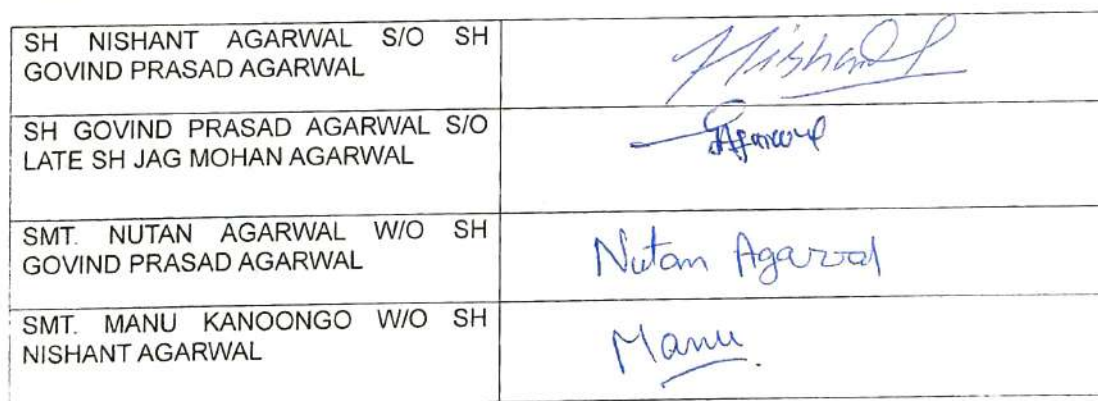 SH NISHANT AGARWAL S/O SH
GOVIND PRASAD AGARWAL
Nishant
SH GOVIND PRASAD AGARWAL S/O
LATE SH JAG MOHAN AGARWAL
Agarwal
SMT. NUTAN AGARWAL W/O SH
GOVIND PRASAD AGARWAL
Nutan Agarwal
SMT. MANU KANOONGO W/O SH
NISHANT AGARWAL
Manu.